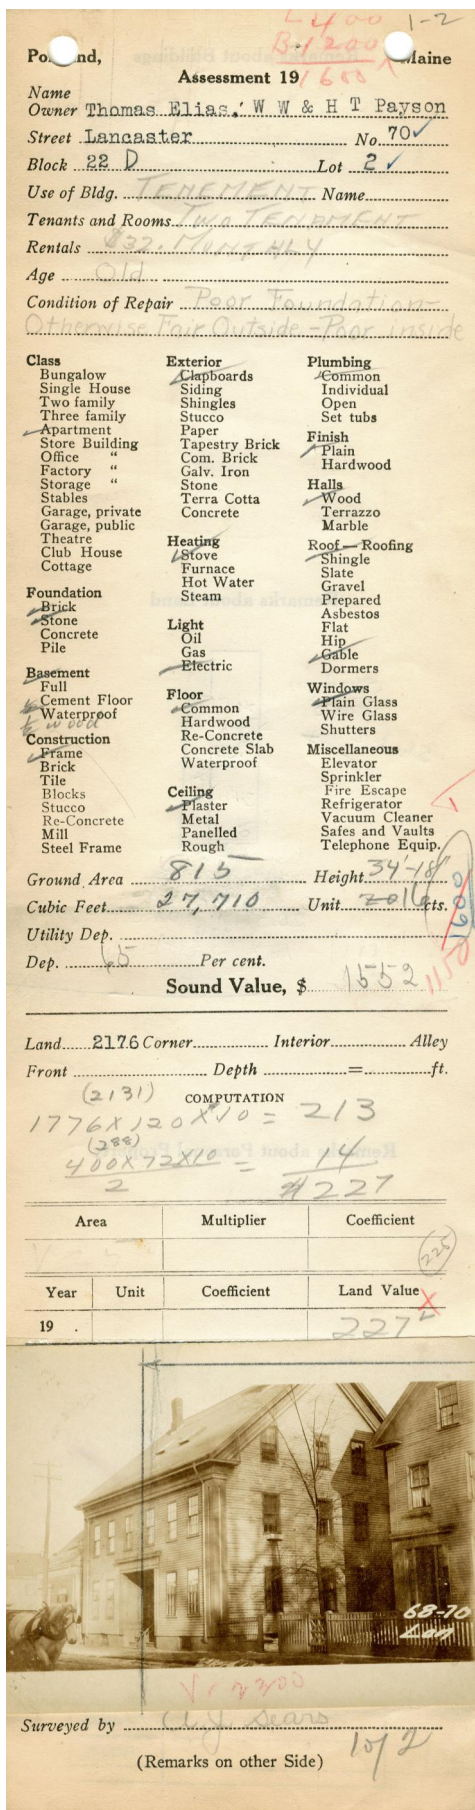 L 400 1-2
B 1200
1600
Portland, Maine
Assessment 19
Name
Owner Thomas Elias, W W & H T Payson
Street Lancaster No. 70
Block 22 D Lot 2
Use of Bldg. TENEMENT Name
Tenants and Rooms TWO TENAMENT
Rentals $32. MONTHLY
Age Old
Condition of Repair Poor Foundation-
Otherwise Fair Outside - Poor inside
Class
Bungalow
Single House
Two family
Three family
Apartment
Store Building
Office "
Factory "
Storage "
Stables
Garage, private
Garage, public
Theatre
Club House
Cottage
Foundation
Brick
Stone
Concrete
Pile
Basement
Full
½ Cement Floor
Waterproof
½ wood
Construction
Frame
Brick
Tile
Blocks
Stucco
Re-Concrete
Mill
Steel Frame
Exterior
Clapboards
Siding
Shingles
Stucco
Paper
Tapestry Brick
Com. Brick
Galv. Iron
Stone
Terra Cotta
Concrete
Heating
Stove
Furnace
Hot Water
Steam
Light
Oil
Gas
Electric
Floor
Common
Hardwood
Re-Concrete
Concrete Slab
Waterproof
Ceiling
Plaster
Metal
Panelled
Rough
Plumbing
Common
Individual
Open
Set tubs
Finish
Plain
Hardwood
Halls
Wood
Terrazzo
Marble
Roof — Roofing
Shingle
Slate
Gravel
Prepared
Asbestos
Flat
Hip
Gable
Dormers
Windows
Plain Glass
Wire Glass
Shutters
Miscellaneous
Elevator
Sprinkler
Fire Escape
Refrigerator
Vacuum Cleaner
Safes and Vaults
Telephone Equip.
Ground Area 815 Height 34'-18'
Cubic Feet 27,710 Unit 20 16 cts.
Utility Dep.
Dep. 65 Per cent.
Sound Value, $ 1552
Land 2176 Corner Interior Alley
Front Depth = ft.
(2131) COMPUTATION
1776 X 120 X 10 = 213
(288)
400 X 72 X 10 = 14
2 $227
Area Multiplier Coefficient
225
Year Unit Coefficient Land Value
19 227
68-70
Lan
Surveyed by A.J. Sears
(Remarks on other Side) 1 of 2